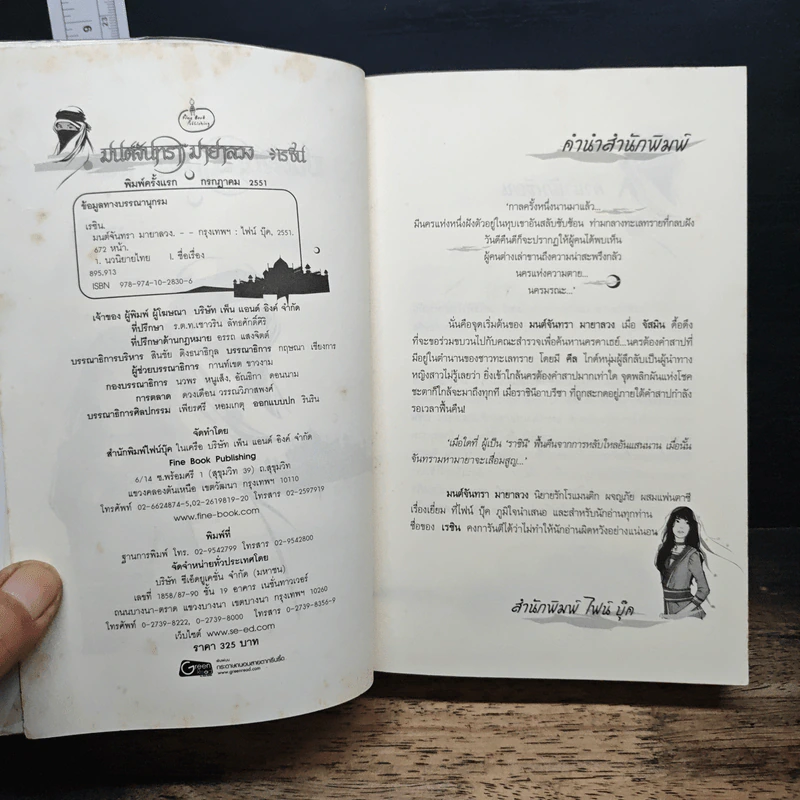 Fine Book
Publishing
มนต์จันทรา มายาลวง เรซิน
พิมพ์ครั้งแรก กรกฎาคม 2551
ข้อมูลทางบรรณานุกรม
เรซิน.
มนต์จันทรา มายาลวง. - - กรุงเทพฯ : ไฟน์ บุ๊ค, 2551.
672 หน้า.
1. นวนิยายไทย I. ชื่อเรื่อง
895.913
ISBN 978-974-10-2830-6
เจ้าของ ผู้พิมพ์ ผู้โฆษณา บริษัท เพ็น แอนด์ อิงค์ จำกัด
ที่ปรึกษา ร.ต.ท.เชาวริน ลัทธศักดิ์ศิริ
ที่ปรึกษาด้านกฎหมาย อรรถ แสงจิตต์
บรรณาธิการบริหาร สินชัย ติงธนาธิกุล บรรณาธิการ กฤษณา เชียงการ
ผู้ช่วยบรรณาธิการ กานท์เขต ชาวงาม
กองบรรณาธิการ นวพร หนูเส็ง, อัณธิกา ดอนนาม
การตลาด ดวงเดือน วรรณวิภาสพงศ์
บรรณาธิการศิลปกรรม เพียรศรี หอมเกตุ ออกแบบปก รินริน
จัดทำโดย
สำนักพิมพ์ไฟน์บุ๊ค ในเครือ บริษัท เพ็น แอนด์ อิงค์ จำกัด
Fine Book Publishing
6/14 ซ.พร้อมศรี 1 (สุขุมวิท 39) ถ.สุขุมวิท
แขวงคลองตันเหนือ เขตวัฒนา กรุงเทพฯ 10110
โทรศัพท์ 02-6624874-5,02-2619819-20 โทรสาร 02-2597919
www.fine-book.com
พิมพ์ที่
ฐานการพิมพ์ โทร. 02-9542799 โทรสาร 02-9542800
จัดจำหน่ายทั่วประเทศโดย
บริษัท ซีเอ็ดยูเคชั่น จำกัด (มหาชน)
เลขที่ 1858/87-90 ชั้น 19 อาคาร เนชั่นทาวเวอร์
ถนนบางนา-ตราด แขวงบางนา เขตบางนา กรุงเทพฯ 10260
โทรศัพท์ 0-2739-8222, 0-2739-8000 โทรสาร 0-2739-8356-9
เว็บไซต์ www.se-ed.com
ราคา 325 บาท
Green
กระดาษถนอมสายตากรีนรี้ด
www.greenread.com
คำนำสำนักพิมพ์
'กาลครั้งหนึ่งนานมาแล้ว...
มีนครแห่งหนึ่งฝังตัวอยู่ในหุบเขาอันสลับซับซ้อน ท่ามกลางทะเลทรายที่กลบฝัง
วันดีคืนดีก็จะปรากฏให้ผู้คนได้พบเห็น
ผู้คนต่างเล่าขานถึงความน่าสะพรึงกลัว
นครแห่งความตาย...
นครมรณะ...'
นั่นคือจุดเริ่มต้นของ มนต์จันทรา มายาลวง เมื่อ จัสมิน ดื้อดึง
ที่จะขอร่วมขบวนไปกับคณะสำรวจเพื่อค้นหานครคาเธย์...นครต้องคำสาปที่
มีอยู่ในตำนานของชาวทะเลทราย โดยมี ศีล ไกด์หนุ่มผู้ลึกลับเป็นผู้นำทาง
หญิงสาวไม่รู้เลยว่า ยิ่งเข้าใกล้นครต้องคำสาปมากเท่าใด จุดพลิกผันแห่งโชค
ชะตาก็ใกล้จะมาถึงทุกที เมื่อราชินีอาบรีซา ที่ถูกสะกดอยู่ภายใต้คำสาปกำลัง
รอเวลาฟื้นคืน!
'เมื่อใดที่ ผู้เป็น 'ราชินี' ฟื้นคืนจากการหลับใหลอันแสนนาน เมื่อนั้น
จันทรามหามายาจะเสื่อมสูญ...'
มนต์จันทรา มายาลวง นิยายรักโรแมนติก ผจญภัย ผสมแฟนตาซี
เรื่องเยี่ยม ที่ไฟน์ บุ๊ค ภูมิใจนำเสนอ และสำหรับนักอ่านทุกท่าน
ชื่อของ เรซิน คงการันตีได้ว่าไม่ทำให้นักอ่านผิดหวังอย่างแน่นอน
สำนักพิมพ์ ไฟน์ บุ๊ค